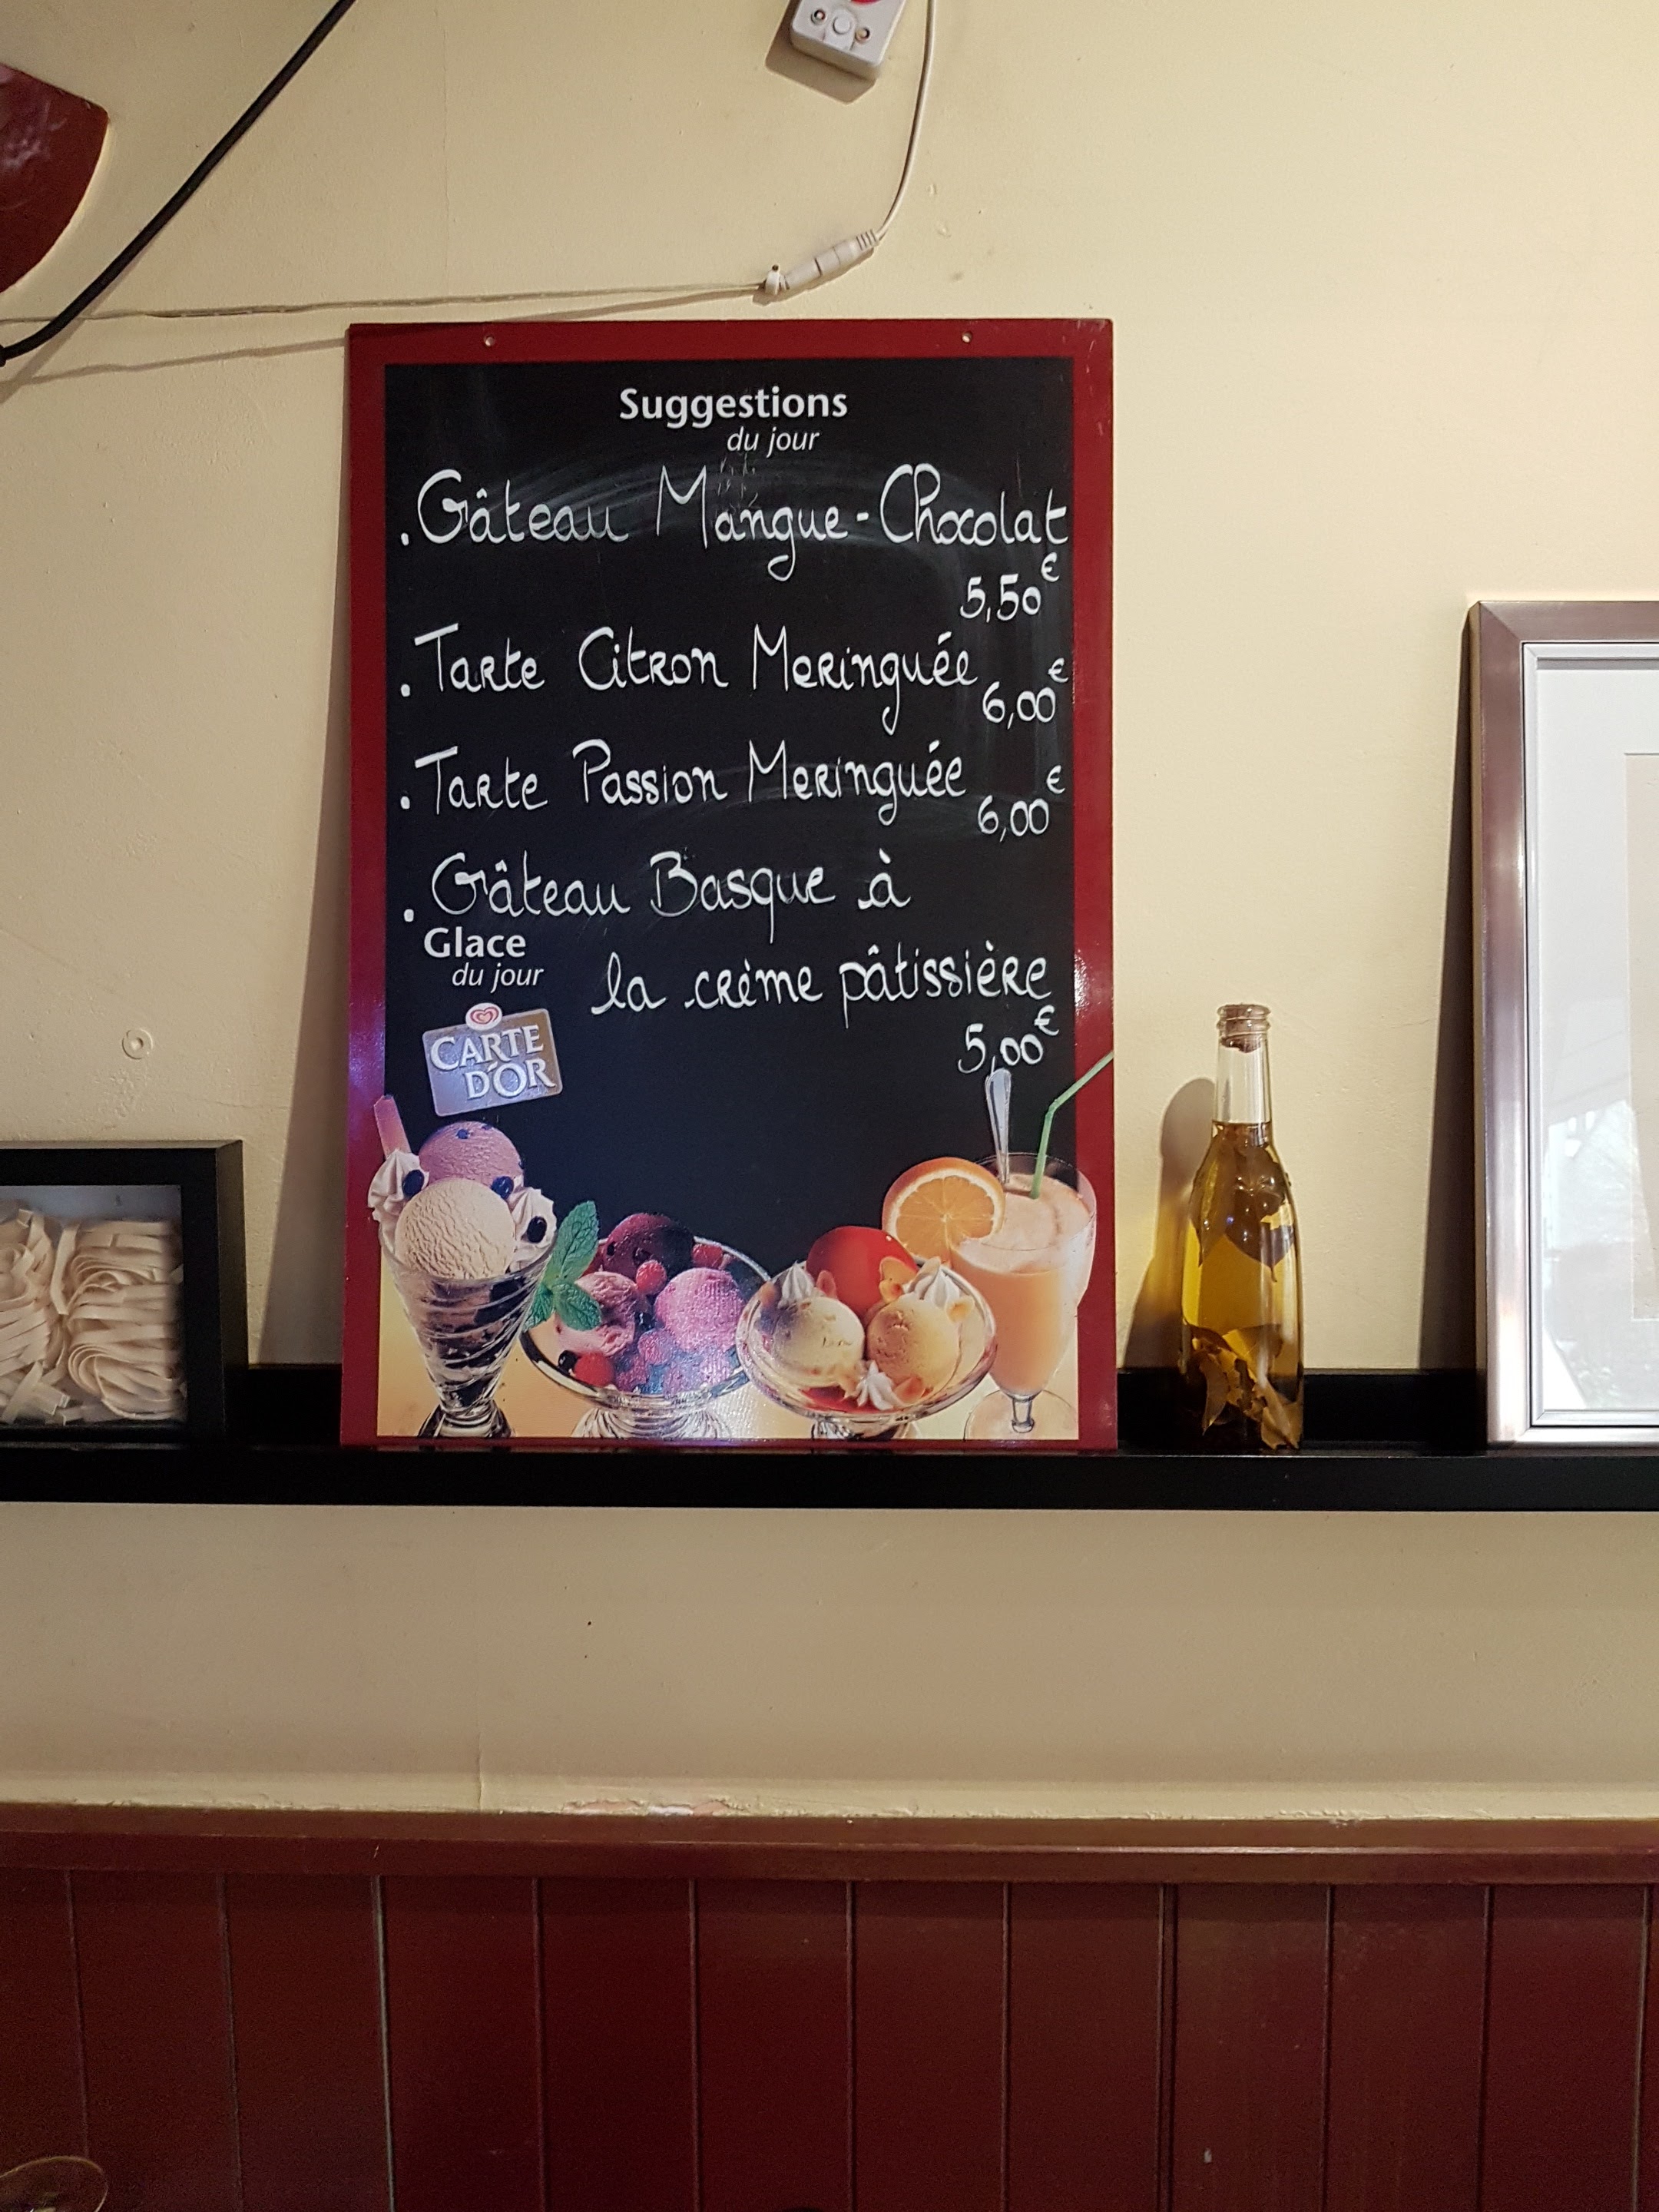 Suggestions
du jour
. Gâteau Mangue-Chocolat
5,50€
. Tarte Citron Meringuée
6,00€
. Tarte Passion Meringuée
6,00€
. Gâteau Basque à
la crème pâtissière
5,00€
Glace
du jour
CARTE
D'OR